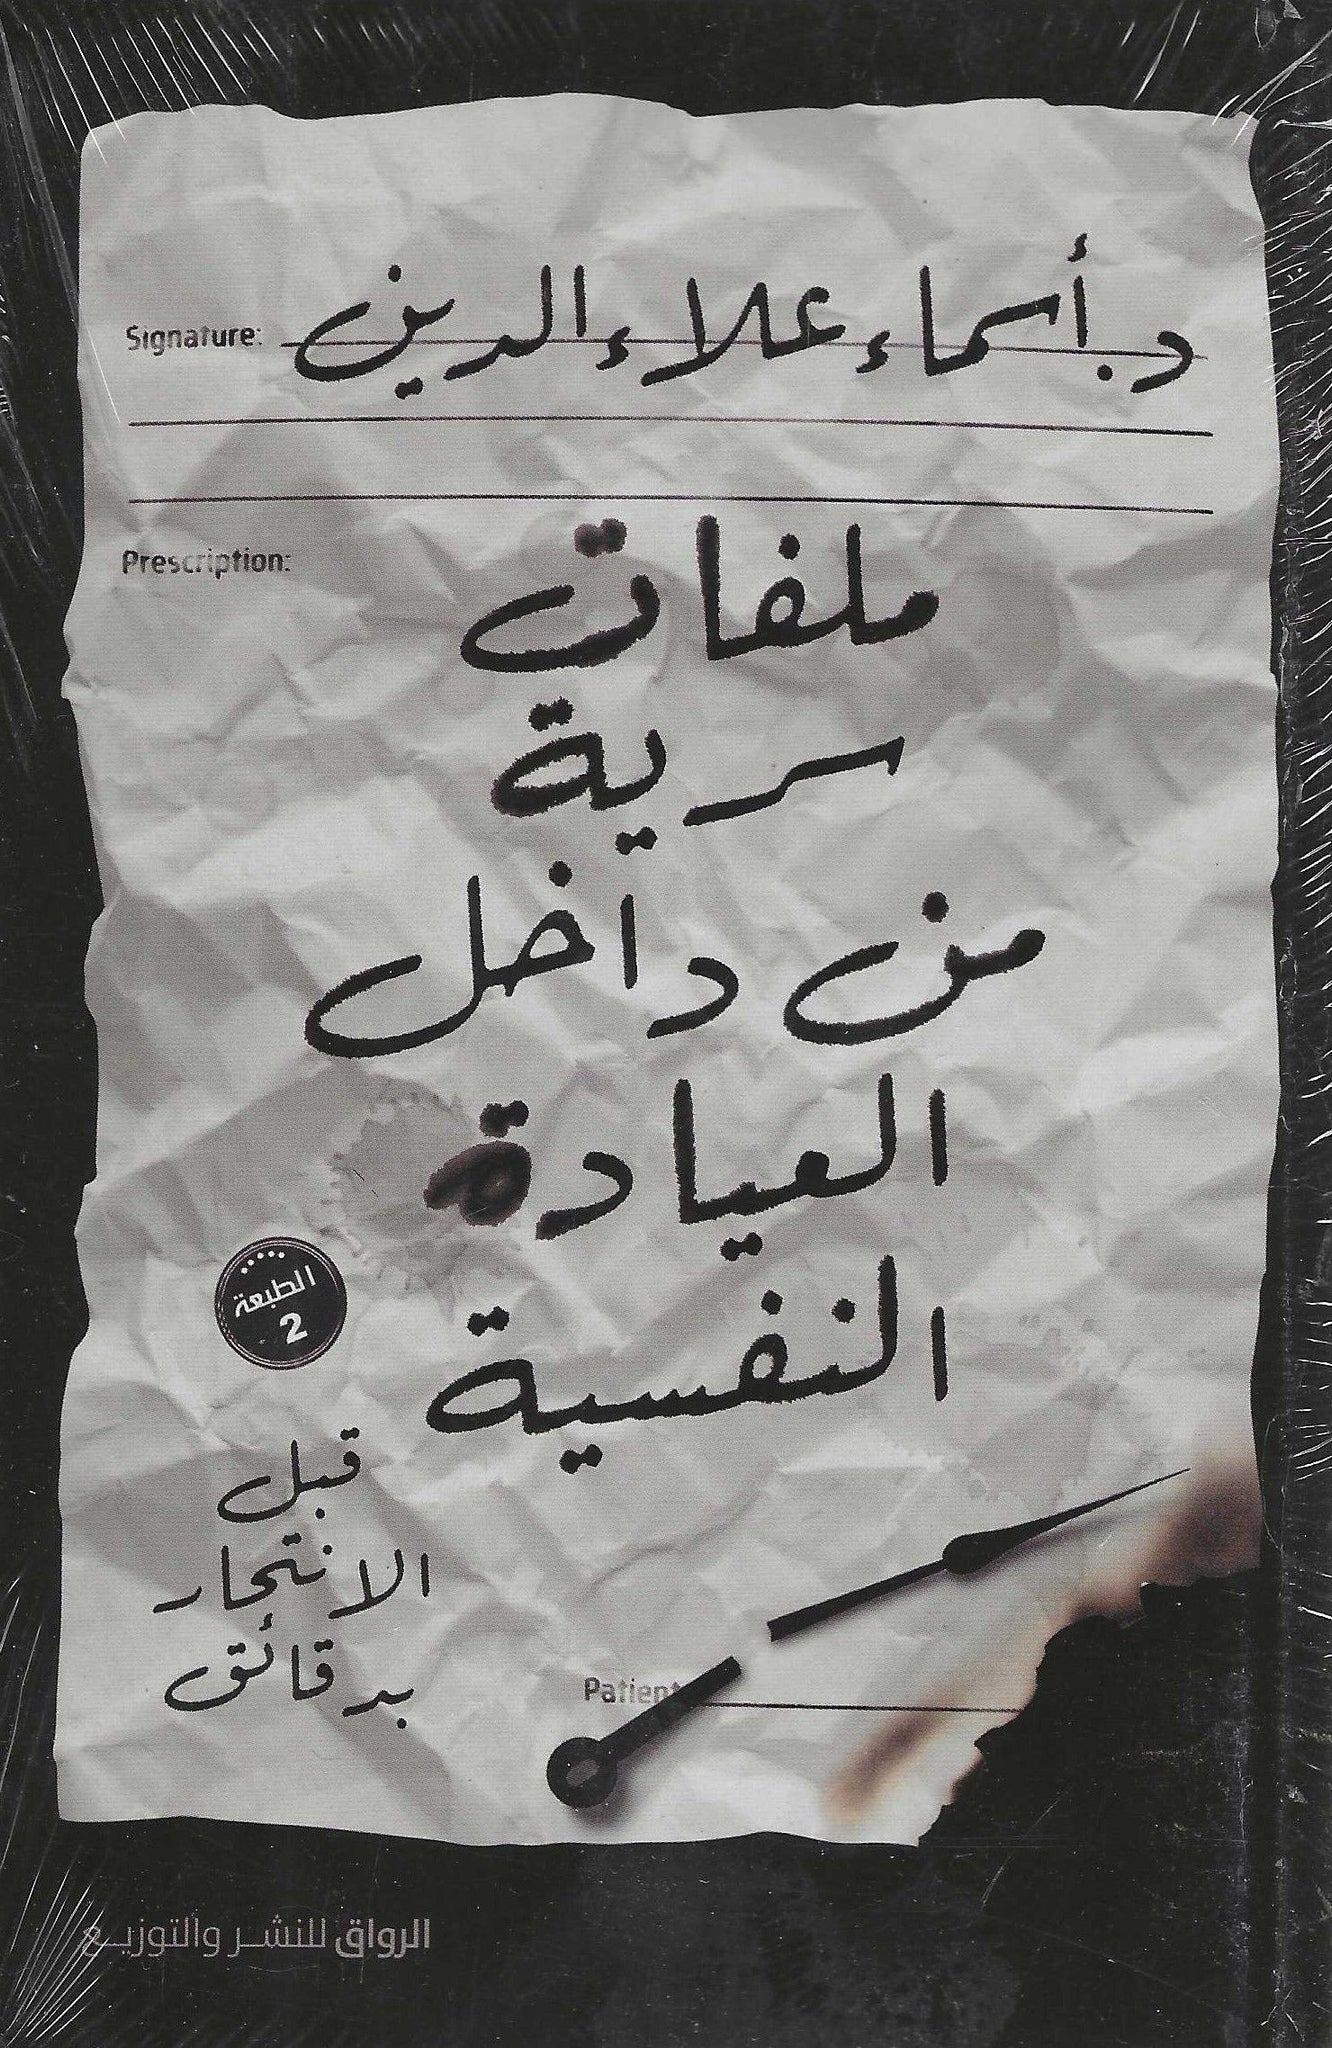 Signature: د. أسماء علاء الدين
Prescription:
ملفات
سرية
من داخل
العيادة
النفسية
الطبعة
2
قبل
الانتحار
بدقائق
Patient
الرواق للنشر والتوزيع